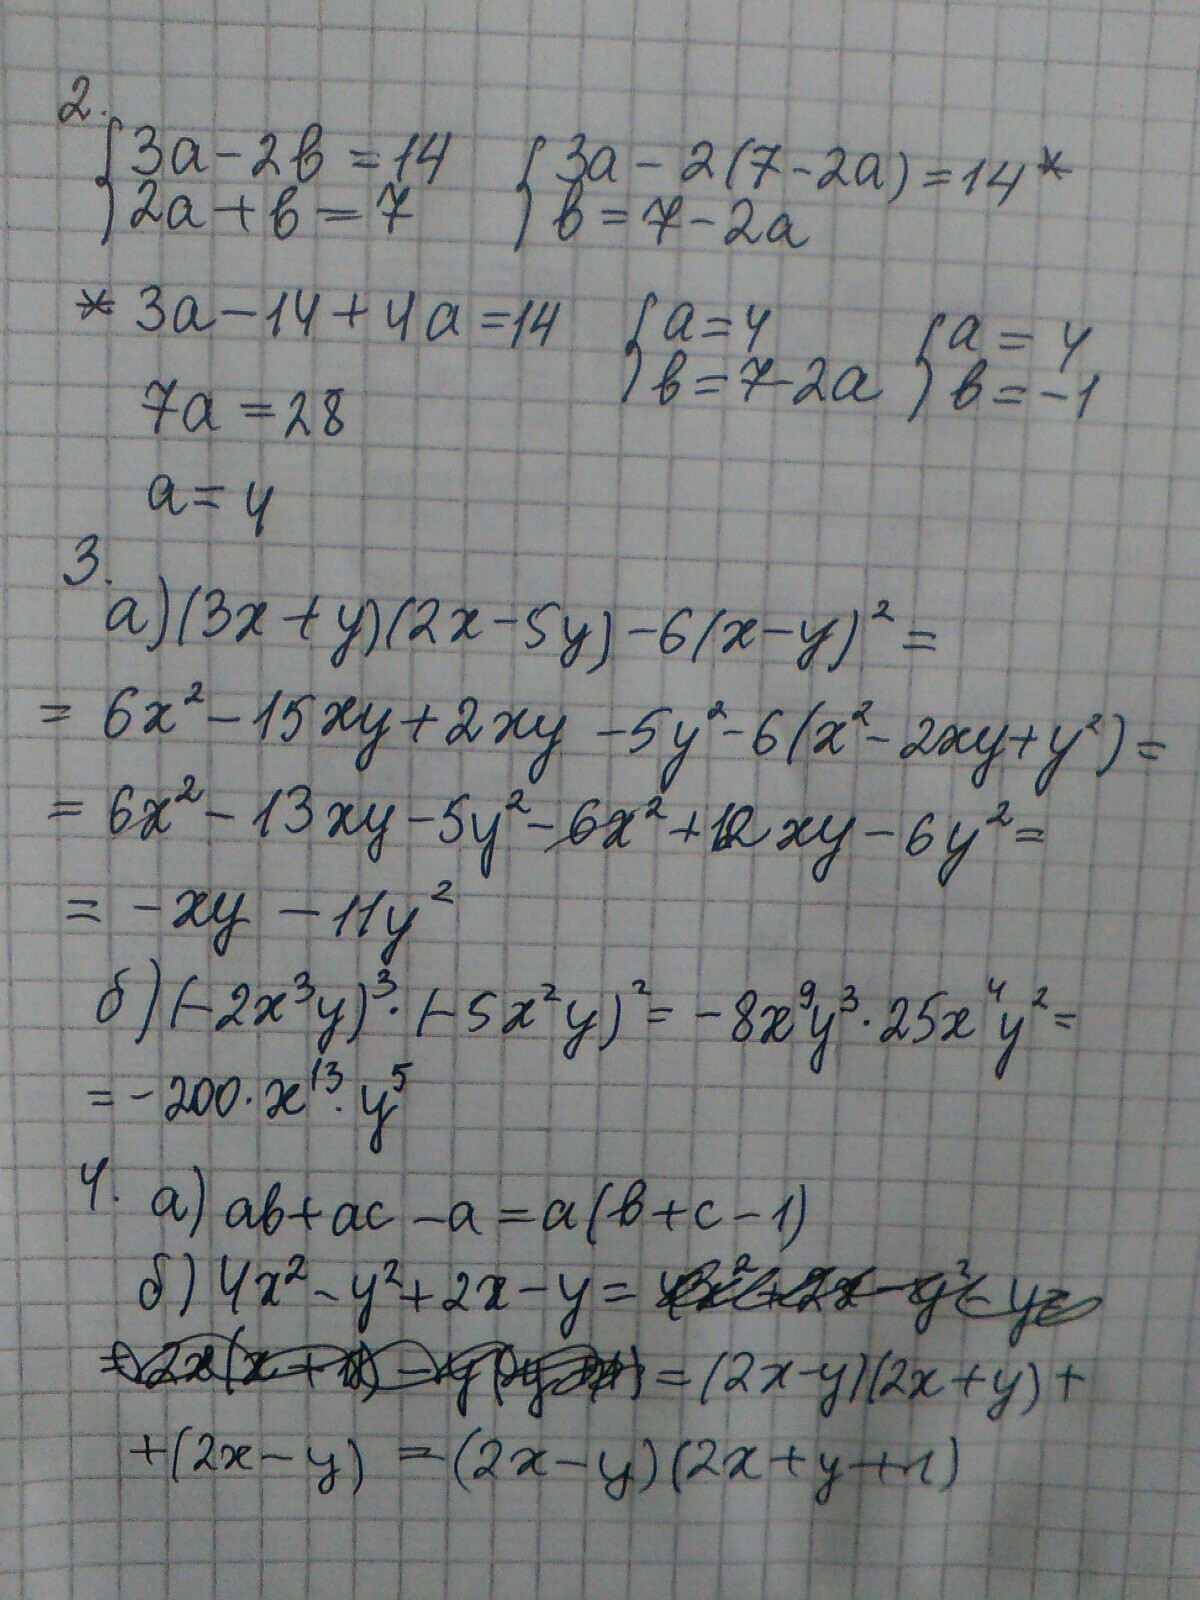 2.
{3a - 2b = 14   {3a - 2(7 - 2a) = 14*
{2a + b = 7   {b = 7 - 2a
* 3a - 14 + 4a = 14   {a = 4   {a = 4
{b = 7 - 2a   {b = -1
7a = 28
a = 4
3.
а) (3x + y)(2x - 5y) - 6(x - y)² =
= 6x² - 15xy + 2xy - 5y² - 6(x² - 2xy + y²) =
= 6x² - 13xy - 5y² - 6x² + 12xy - 6y² =
= -xy - 11y²
б) (-2x³y)³ · (-5x²y)² = -8x⁹y³ · 25x⁴y² =
= -200 · x¹³ · y⁵
4. а) ab + ac - a = a(b + c - 1)
б) 4x² - y² + 2x - y =
= (2x - y)(2x + y) +
+ (2x - y) = (2x - y)(2x + y + 1)